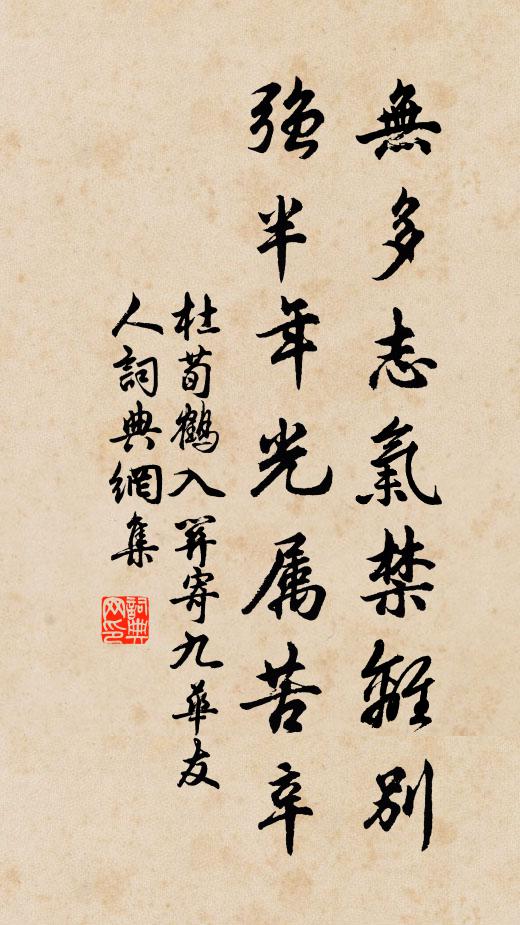 無多志氣禁離別
强半年光属苦辛
杜荀鶴入關寄九華友
人詞典網集
詞典
网印